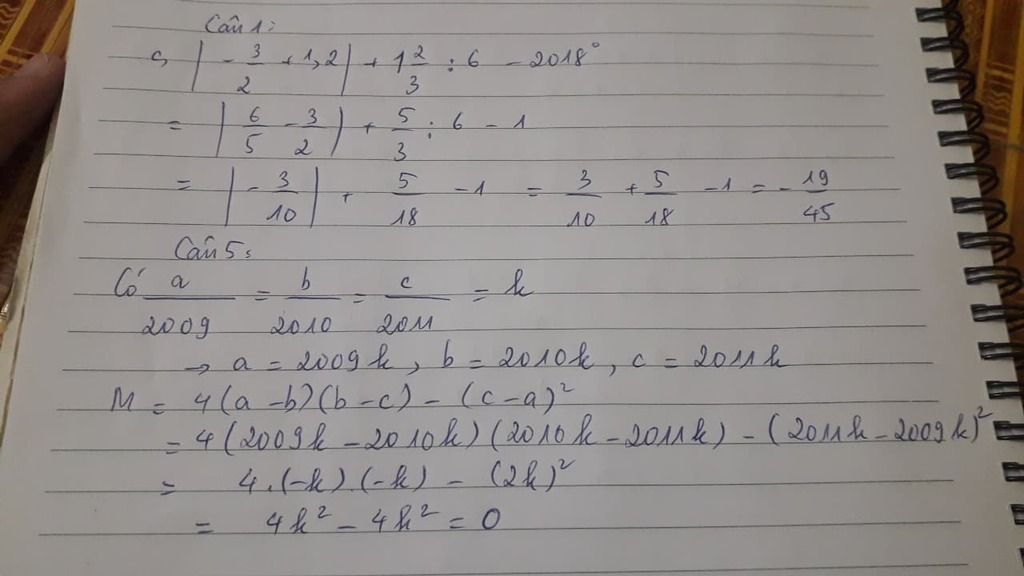 Câu 1:
c, | - 3/2 + 1,2 | + 1 2/3 : 6 - 2018°
= | 6/5 - 3/2 | + 5/3 : 6 - 1
= | - 3/10 | + 5/18 - 1 = 3/10 + 5/18 - 1 = - 19/45
Câu 5:
Có a/2009 = b/2010 = c/2011 = k
→ a = 2009k, b = 2010k, c = 2011k
M = 4(a - b)(b - c) - (c - a)²
= 4(2009k - 2010k)(2010k - 2011k) - (2011k - 2009k)²
= 4.(-k)(-k) - (2k)²
= 4k² - 4k² = 0